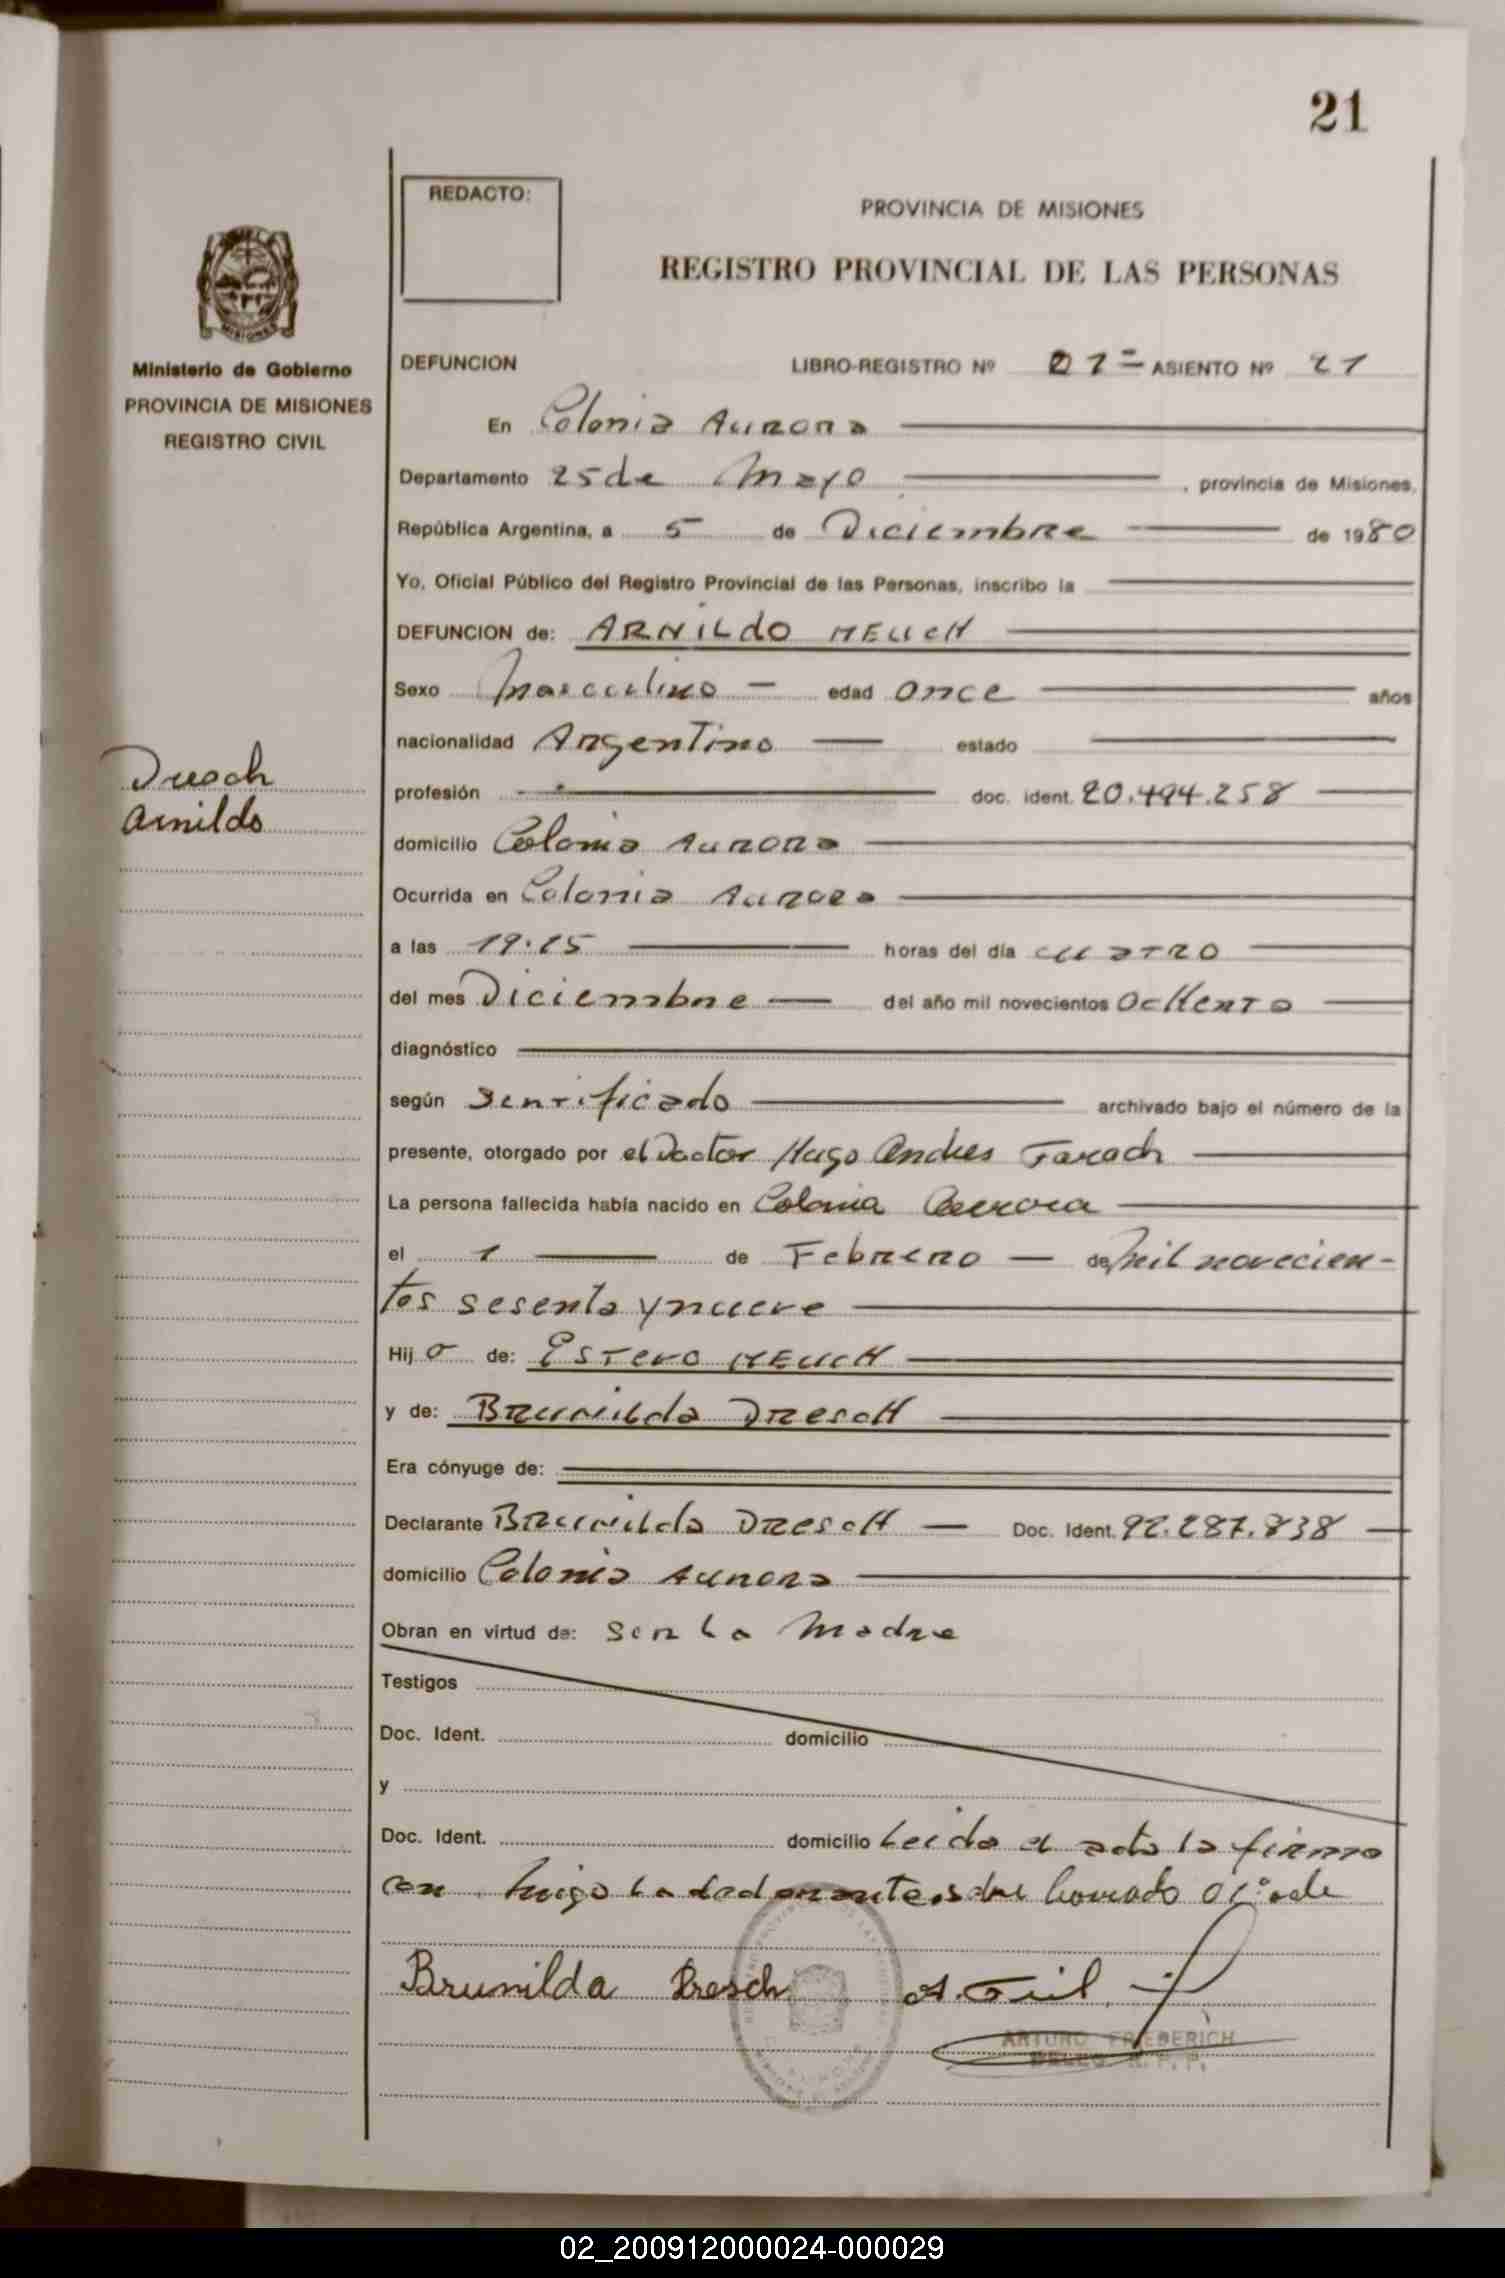 21
REDACTO:
PROVINCIA DE MISIONES
REGISTRO PROVINCIAL DE LAS PERSONAS
MISIONES
Ministerio de Gobierno
PROVINCIA DE MISIONES
REGISTRO CIVIL
Dresch
Arnildo
DEFUNCION LIBRO-REGISTRO Nº 01= ASIENTO Nº 21
En Colonia Aurora
Departamento 25 de Mayo , provincia de Misiones,
República Argentina, a 5 de Diciembre de 1980
Yo, Oficial Público del Registro Provincial de las Personas, inscribo la
DEFUNCION de: ARNILDO HEUCH
Sexo Masculino — edad once años
nacionalidad Argentino estado
profesión doc. ident. 20.494.258
domicilio Colonia Aurora
Ocurrida en Colonia Aurora
a las 19.15 horas del día cuatro
del mes Diciembre del año mil novecientos Ochenta
diagnóstico
según archivado bajo el número de la
presente, otorgado por el Doctor Hugo Andres Farach
La persona fallecida había nacido en Colonia Aurora
el 1 de Febrero — de mil novecien-
tos sesenta y nueve
Hij o de: Estevo HEUCH
y de: Brunilda Dresch
Era cónyuge de:
Declarante Brunilda Dresch — Doc. Ident. 92.287.838
domicilio Colonia Aurora
Obran en virtud de: Ser La Madre
Testigos
Doc. Ident. domicilio
y
Doc. Ident. domicilio Leida el acta la firma
con migo La
Brunilda Dresch A.
ARTURO FRIEDERICH
02_200912000024-000029